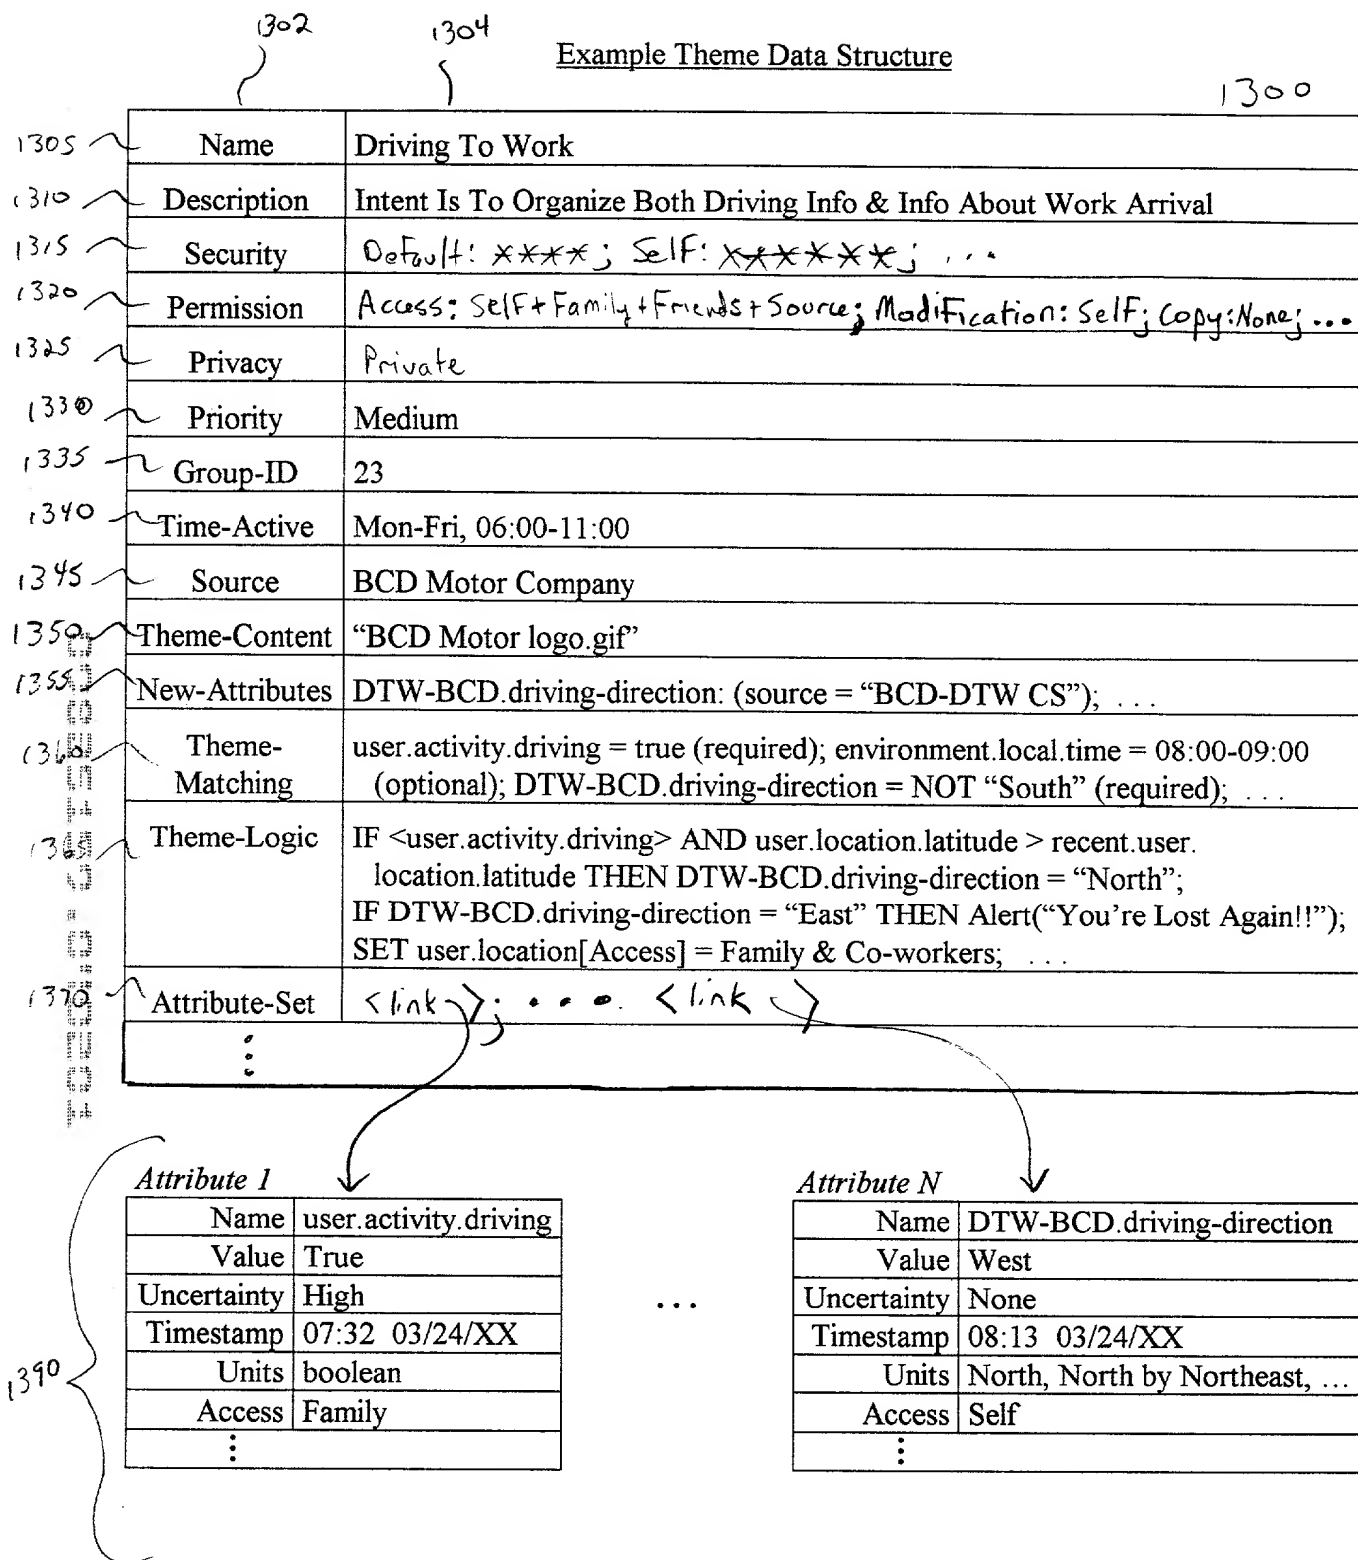 1302 1304
Example Theme Data Structure
1300
1305 Name Driving To Work
1310 Description Intent Is To Organize Both Driving Info & Info About Work Arrival
1315 Security Default: ****; Self: ******; ...
1320 Permission Access: Self+Family+Friends+Source; Modification: Self; Copy: None; ...
1325 Privacy Private
1330 Priority Medium
1335 Group-ID 23
1340 Time-Active Mon-Fri, 06:00-11:00
1345 Source BCD Motor Company
1350 Theme-Content “BCD Motor logo.gif”
1355 New-Attributes DTW-BCD.driving-direction: (source = “BCD-DTW CS”); ...
1360 Theme- user.activity.driving = true (required); environment.local.time = 08:00-09:00
Matching (optional); DTW-BCD.driving-direction = NOT “South” (required); ...
1365 Theme-Logic IF <user.activity.driving> AND user.location.latitude > recent.user.
location.latitude THEN DTW-BCD.driving-direction = “North”;
IF DTW-BCD.driving-direction = “East” THEN Alert(“You're Lost Again!!”);
SET user.location[Access] = Family & Co-workers; ...
1370 Attribute-Set <link>; .... <link>
⋮
Attribute 1 Attribute N
Name user.activity.driving Name DTW-BCD.driving-direction
Value True Value West
Uncertainty High ... Uncertainty None
Timestamp 07:32 03/24/XX Timestamp 08:13 03/24/XX
1390 Units boolean Units North, North by Northeast, ...
Access Family Access Self
⋮ ⋮